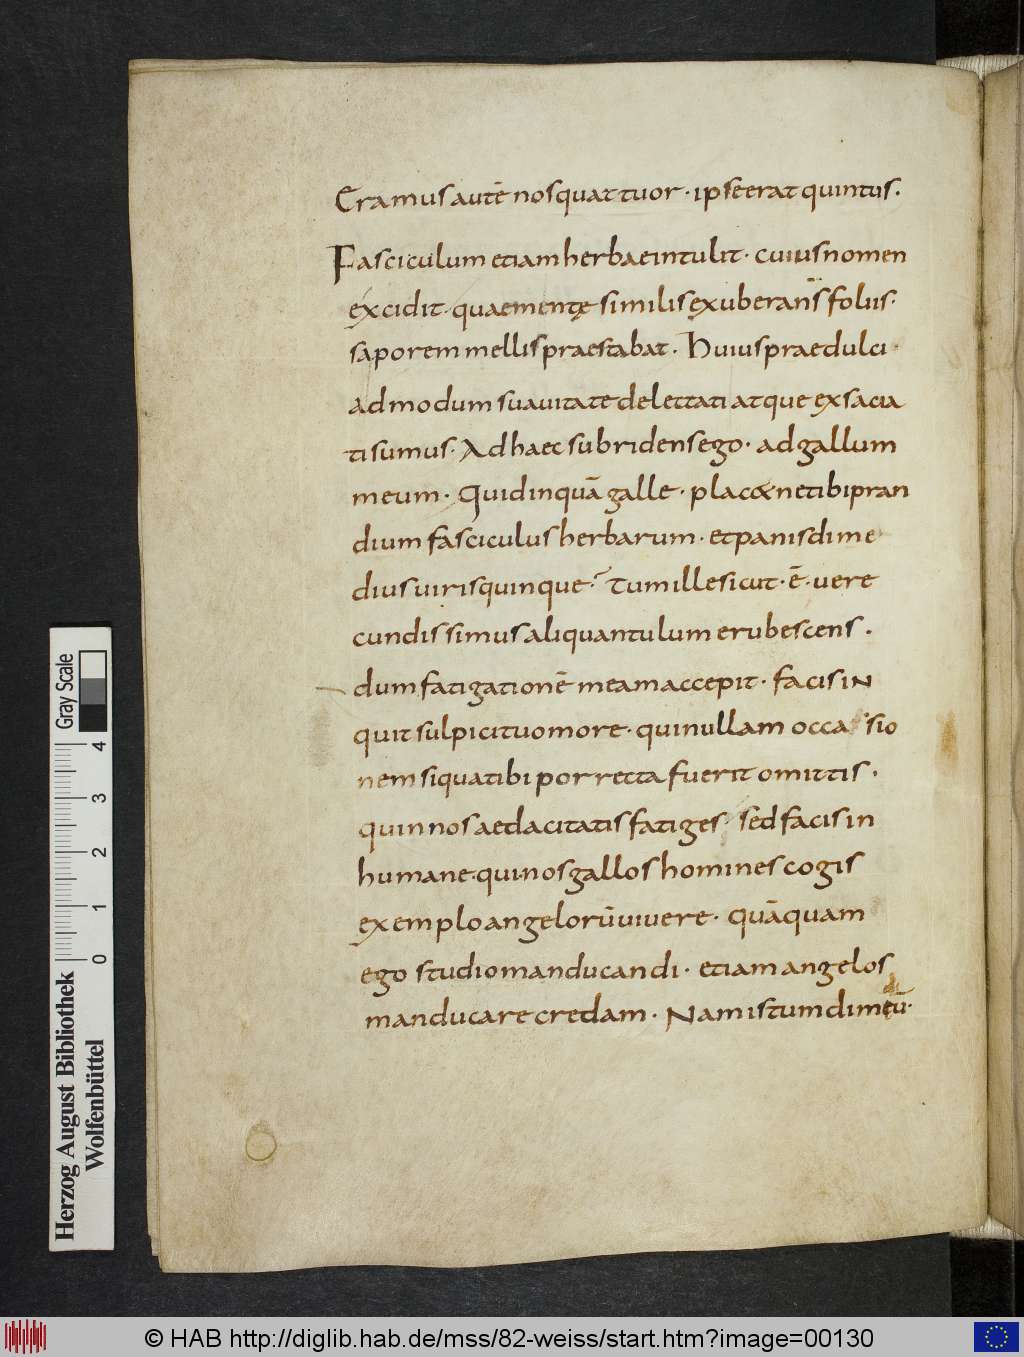 Eramus autē nos quattuor · ipse erat quintus.
Fasciculum etiam herbae intulit · cuius nomen
excidit · quae mentę similis exuberans foliis·
saporem mellis praestabat · Huius praedulci·
ad modum suavitate delectati atque exsacia
ti sumus · Ad haec subridens ego · ad gallum
meum · Quid inquā galle · placet ne tibi pran
dium fasciculus herbarum · et panis dime
dius viris quinque · Tum ille sicut · ē · vere
cundissimus aliquantulum erubescens ·
dum fatigationē meam accepit · facis in
quit sulpici tuo more · qui nullam occa sio
nem si qua tibi porrecta fuerit omittis ·
quin nos aedacitatis fatiges · sed facis in
humane · qui nos gallos homines cogis
exemplo angelorū vivere · quāquam
ego studio manducandi · etiam angelos
manducare credam · Nam istum dimeū·
di
Herzog August Bibliothek
Wolfenbüttel
Gray Scale
0 1 2 3 4
© HAB http://diglib.hab.de/mss/82-weiss/start.htm?image=00130